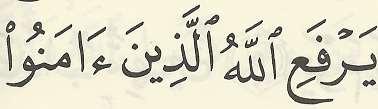 يَرْفَعِ ٱللَّهُ ٱلَّذِينَ ءَامَنُوا۟